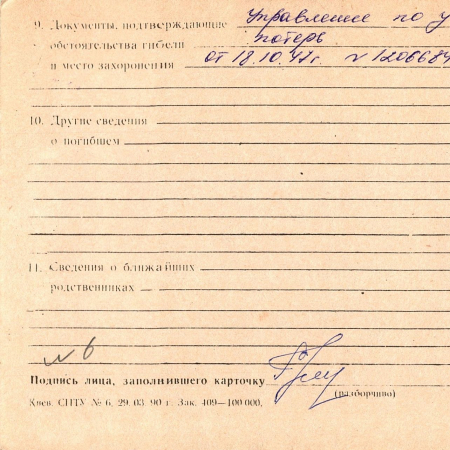 9. Документы, подтверждающие Управление по у
обстоятельства гибели потерь
и место захоронения от 18.10.47г. N 1206684
10. Другие сведения
о погибшем
11. Сведения о ближайших
родственниках
N 6
Подпись лица, заполнившего карточку
(разборчиво)
Киев. СПТУ № 6, 29. 03. 90 г. Зак. 409—100 000.